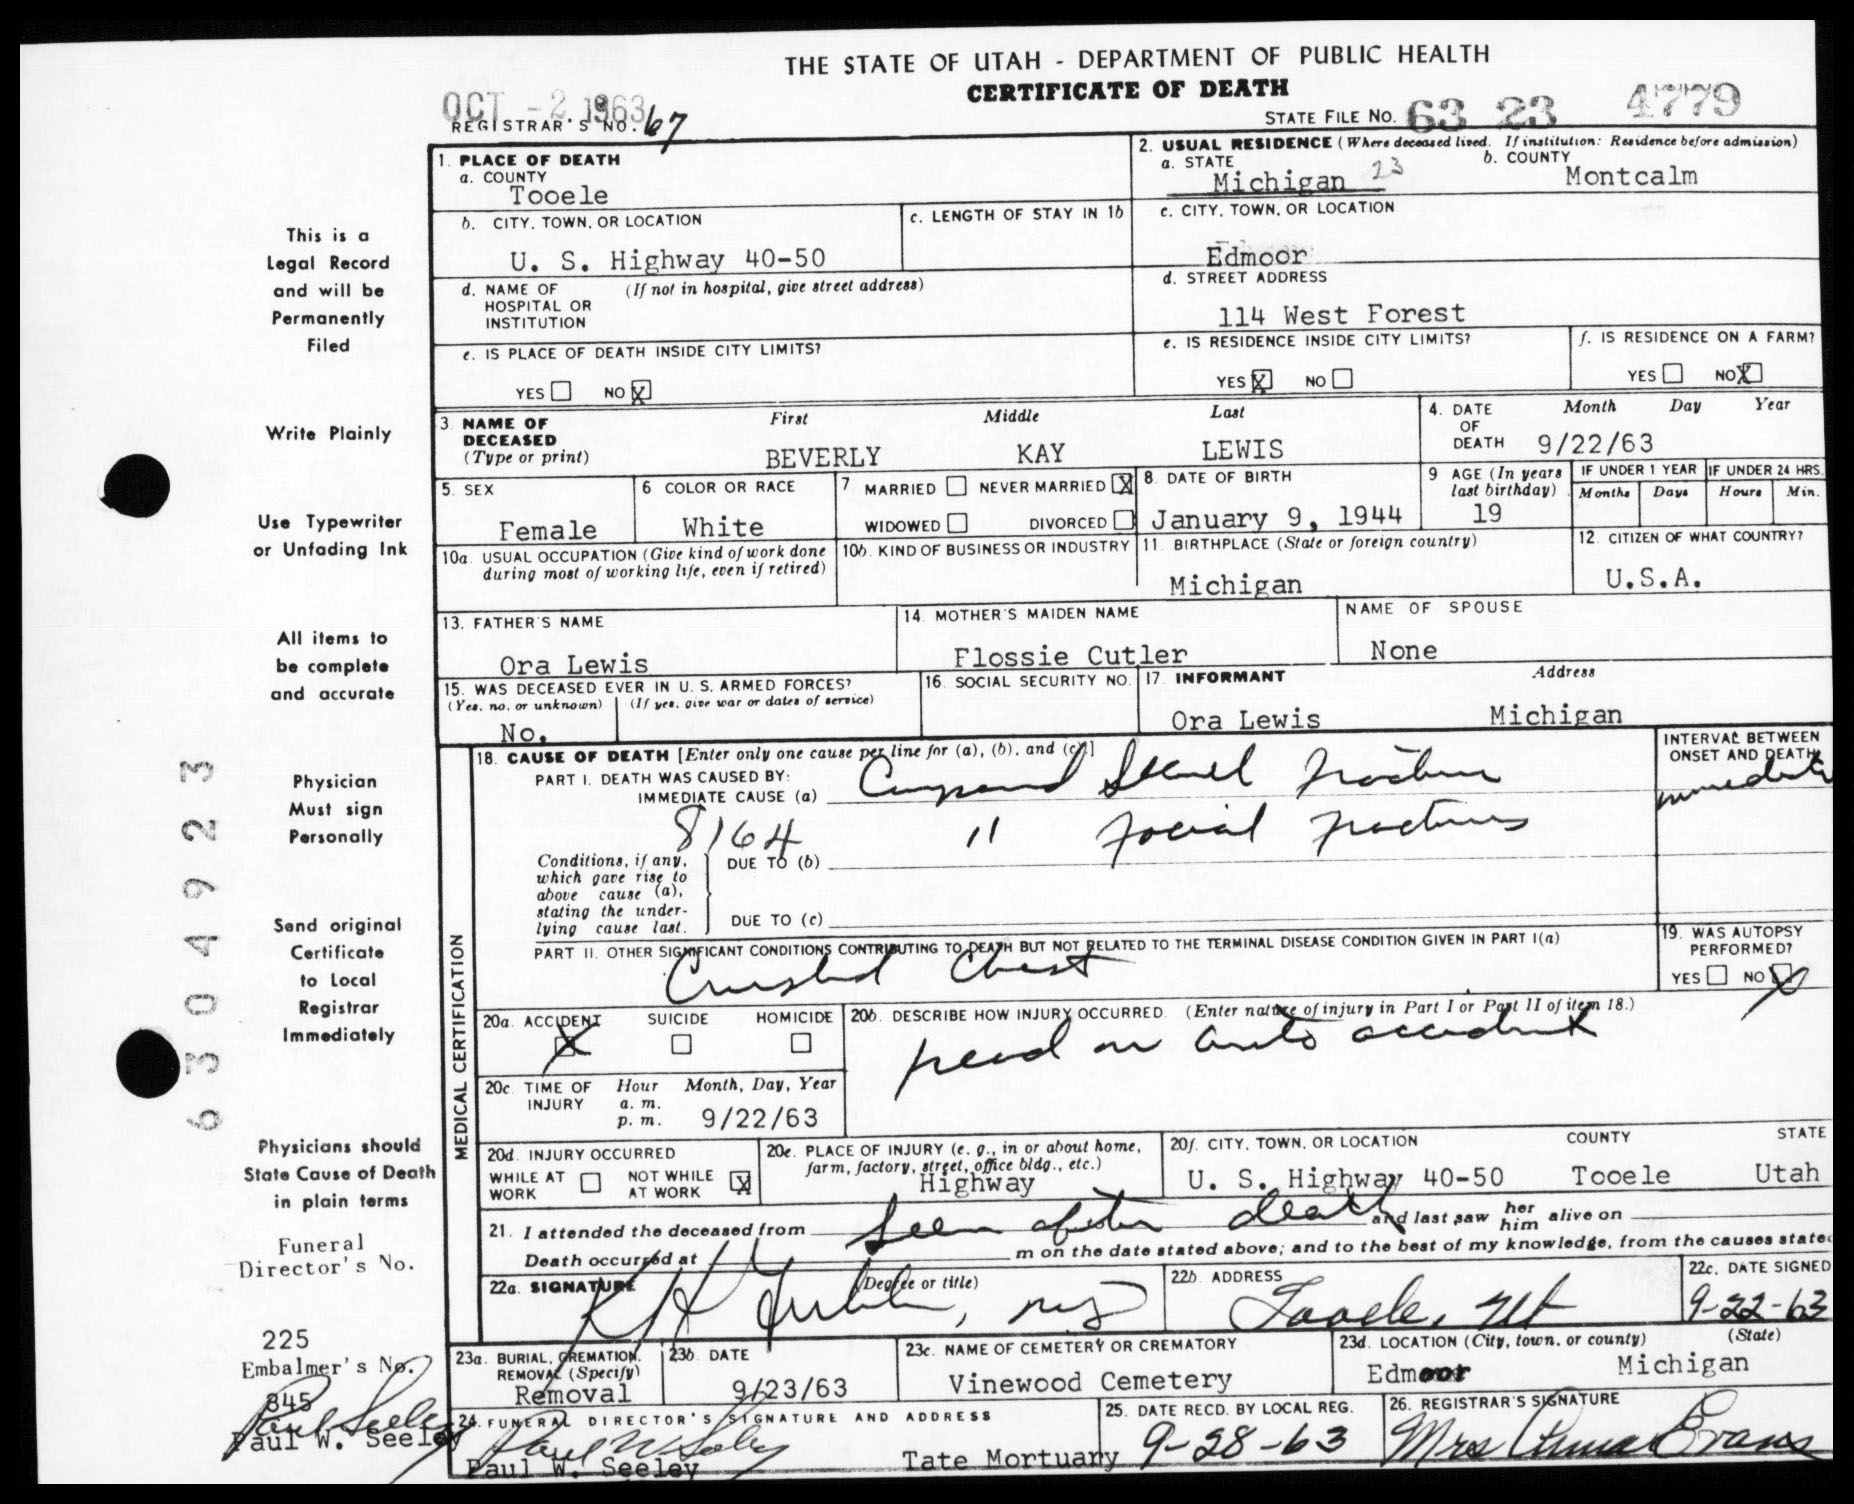 THE STATE OF UTAH - DEPARTMENT OF PUBLIC HEALTH
CERTIFICATE OF DEATH
OCT -2 1963
REGISTRAR'S NO. 67
STATE FILE NO. 63 23 4779
1. PLACE OF DEATH
a. COUNTY
Tooele
2. USUAL RESIDENCE (Where deceased lived. If institution: Residence before admission)
a. STATE b. COUNTY
Michigan 23 Montcalm
b. CITY, TOWN, OR LOCATION
U. S. Highway 40-50
c. LENGTH OF STAY IN 1b
c. CITY, TOWN, OR LOCATION
Edmoor
d. NAME OF (If not in hospital, give street address)
HOSPITAL OR
INSTITUTION
d. STREET ADDRESS
114 West Forest
e. IS PLACE OF DEATH INSIDE CITY LIMITS?
YES NO X
e. IS RESIDENCE INSIDE CITY LIMITS?
YES X NO
f. IS RESIDENCE ON A FARM?
YES NO X
3. NAME OF First Middle Last
DECEASED
(Type or print) BEVERLY KAY LEWIS
4. DATE Month Day Year
OF
DEATH 9/22/63
5. SEX
Female
6 COLOR OR RACE
White
7 MARRIED NEVER MARRIED X
WIDOWED DIVORCED
8. DATE OF BIRTH
January 9, 1944
9 AGE (In years
last birthday)
19
IF UNDER 1 YEAR IF UNDER 24 HRS.
Months Days Hours Min.
10a. USUAL OCCUPATION (Give kind of work done
during most of working life, even if retired)
10b. KIND OF BUSINESS OR INDUSTRY
11. BIRTHPLACE (State or foreign country)
Michigan
12. CITIZEN OF WHAT COUNTRY?
U.S.A.
13. FATHER'S NAME
Ora Lewis
14. MOTHER'S MAIDEN NAME
Flossie Cutler
NAME OF SPOUSE
None
15. WAS DECEASED EVER IN U. S. ARMED FORCES?
(Yes, no, or unknown) (If yes, give war or dates of service)
No.
16. SOCIAL SECURITY NO.
17. INFORMANT Address
Ora Lewis Michigan
18. CAUSE OF DEATH [Enter only one cause per line for (a), (b), and (c).]
PART I. DEATH WAS CAUSED BY:
IMMEDIATE CAUSE (a) Compound Skull Fracture
INTERVAL BETWEEN
ONSET AND DEATH
immediate
8164
DUE TO (b) " Facial Fractures
Conditions, if any,
which gave rise to
above cause (a),
stating the under-
lying cause last.
DUE TO (c)
PART II. OTHER SIGNIFICANT CONDITIONS CONTRIBUTING TO DEATH BUT NOT RELATED TO THE TERMINAL DISEASE CONDITION GIVEN IN PART I(a)
Crushed Chest
19. WAS AUTOPSY
PERFORMED?
YES NO X
MEDICAL CERTIFICATION
20a. ACCIDENT SUICIDE HOMICIDE
X
20b. DESCRIBE HOW INJURY OCCURRED. (Enter nature of injury in Part I or Part II of item 18.)
head on auto accident
20c. TIME OF Hour Month, Day, Year
INJURY a. m.
p. m. 9/22/63
20d. INJURY OCCURRED
WHILE AT NOT WHILE
WORK AT WORK X
20e. PLACE OF INJURY (e. g., in or about home,
farm, factory, street, office bldg., etc.)
Highway
20f. CITY, TOWN, OR LOCATION COUNTY STATE
U. S. Highway 40-50 Tooele Utah
21. I attended the deceased from seen after death and last saw her him alive on
Death occurred at m on the date stated above; and to the best of my knowledge, from the causes stated
22a. SIGNATURE (Degree or title)
22b. ADDRESS
Tooele, Ut
22c. DATE SIGNED
9-22-63
23a. BURIAL, CREMATION,
REMOVAL (Specify)
Removal
23b. DATE
9/23/63
23c. NAME OF CEMETERY OR CREMATORY
Vinewood Cemetery
23d. LOCATION (City, town, or county) (State)
Edmoor Michigan
24. FUNERAL DIRECTOR'S SIGNATURE AND ADDRESS
Paul W Seeley
Paul W. Seeley Tate Mortuary
25. DATE RECD. BY LOCAL REG.
9-28-63
26. REGISTRAR'S SIGNATURE
Mrs Evans
This is a
Legal Record
and will be
Permanently
Filed
Write Plainly
Use Typewriter
or Unfading Ink
All items to
be complete
and accurate
Physician
Must sign
Personally
Send original
Certificate
to Local
Registrar
Immediately
Physicians should
State Cause of Death
in plain terms
Funeral
Director's No.
225
Embalmer's No.
845
Paul Seeley
Paul W. Seeley
63 04923